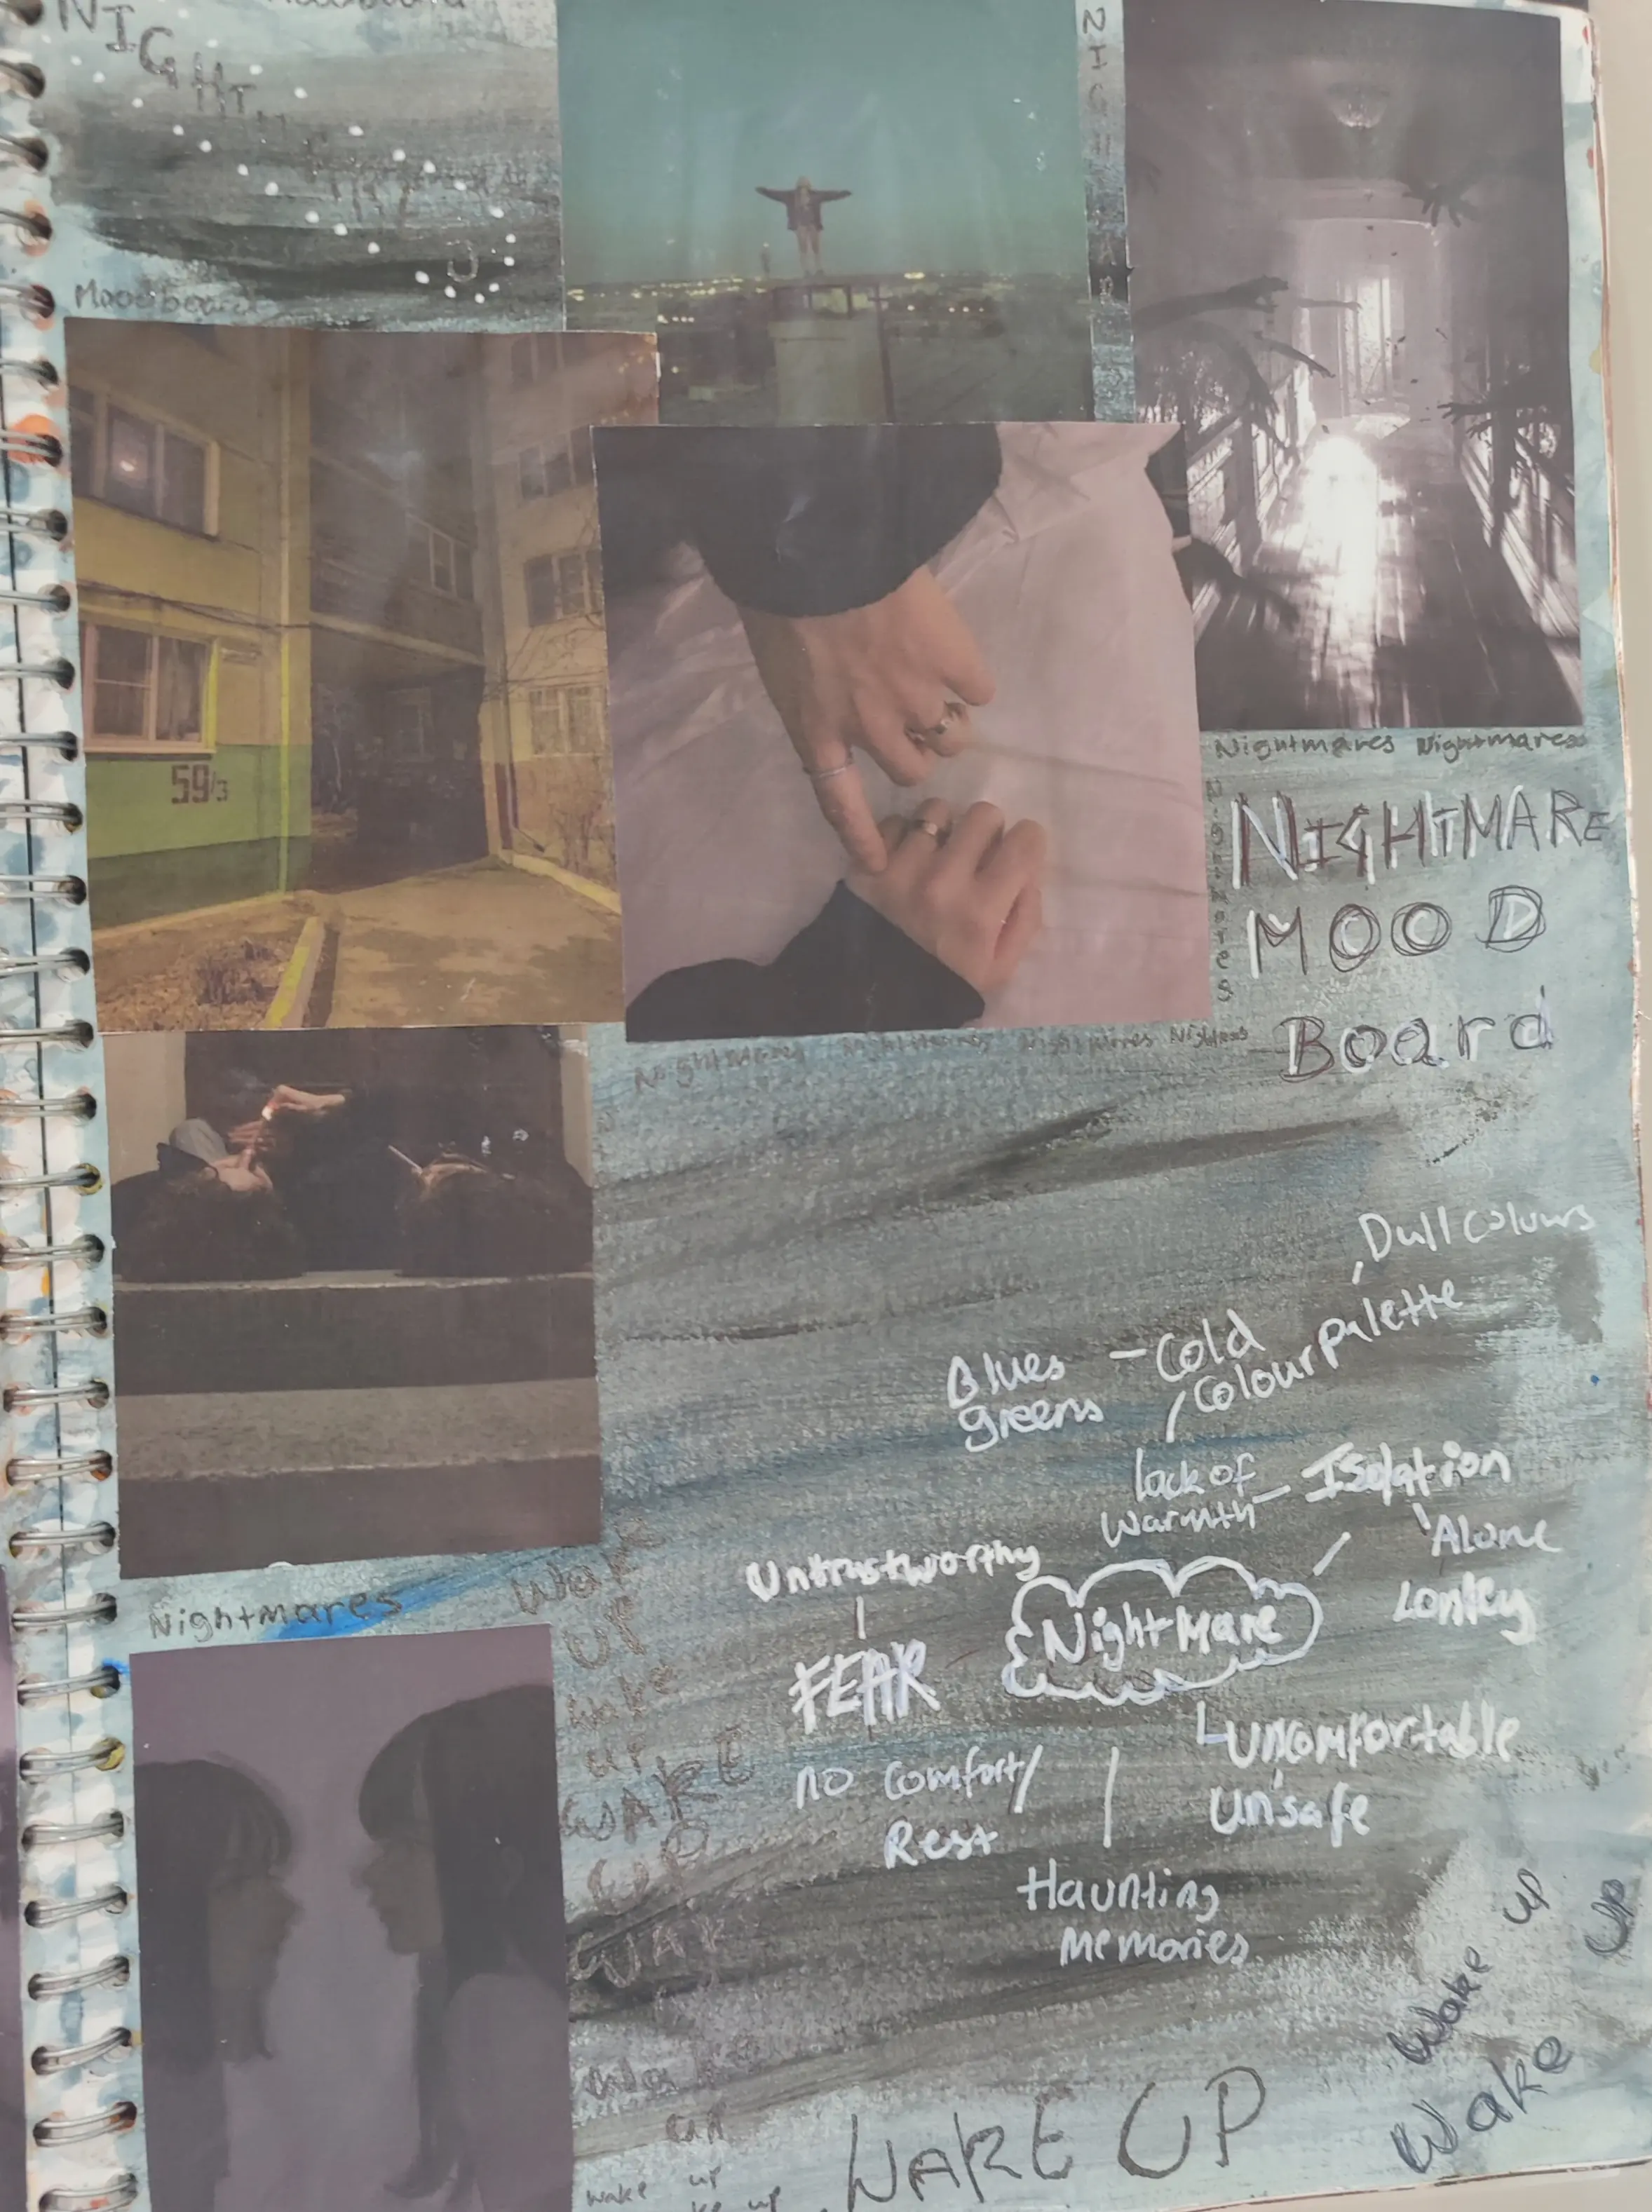 NIGHT
Moodboard
NIGHTMARE
59/3
Nightmares Nightmares
Nightmares
NIGHTMARE
MOOD
Board
Nightmares Nightmares Nightmares Nightmares
Dull colours
Blues - Cold
greens
Colour palette
lack of
warmth - Isolation
Alone
Lonley
Untrustworthy
NightMare
FEAR
no comfort/
Rest
Uncomfortable
Unsafe
Haunting
Memories
Nightmares
Wake
UP
wake
up
WAKE
UP
WAK
Wake
up
wake up
WAKE UP
Wake up
Wake UP